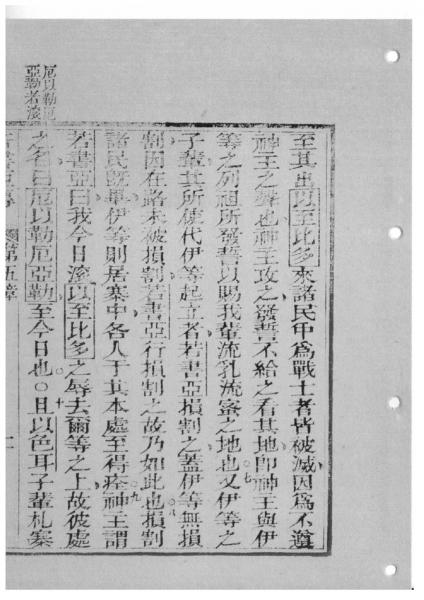 至其出以至比多來諸民中爲戰士者皆被滅因爲不遵
神王之聲也神王攻之發誓不給之看其地即神王與伊
等之列祖所發誓以賜我輩流乳流蜜之地也○七又伊等之
子輩其所使代伊等起立者若書亞損割之蓋伊等無損
割因在路未被損割若書亞行損割之故乃如此也○八損割
諸民既畢伊等則居寨中各人于其本處至得痊○九神王謂
若書亞曰我今日滚以至比多之辱去爾等之上故彼處
之名曰厄以勒厄亞勒至今日也○十且以色耳子輩札寨
厄以勒厄
亞勒者滚
第五章 二